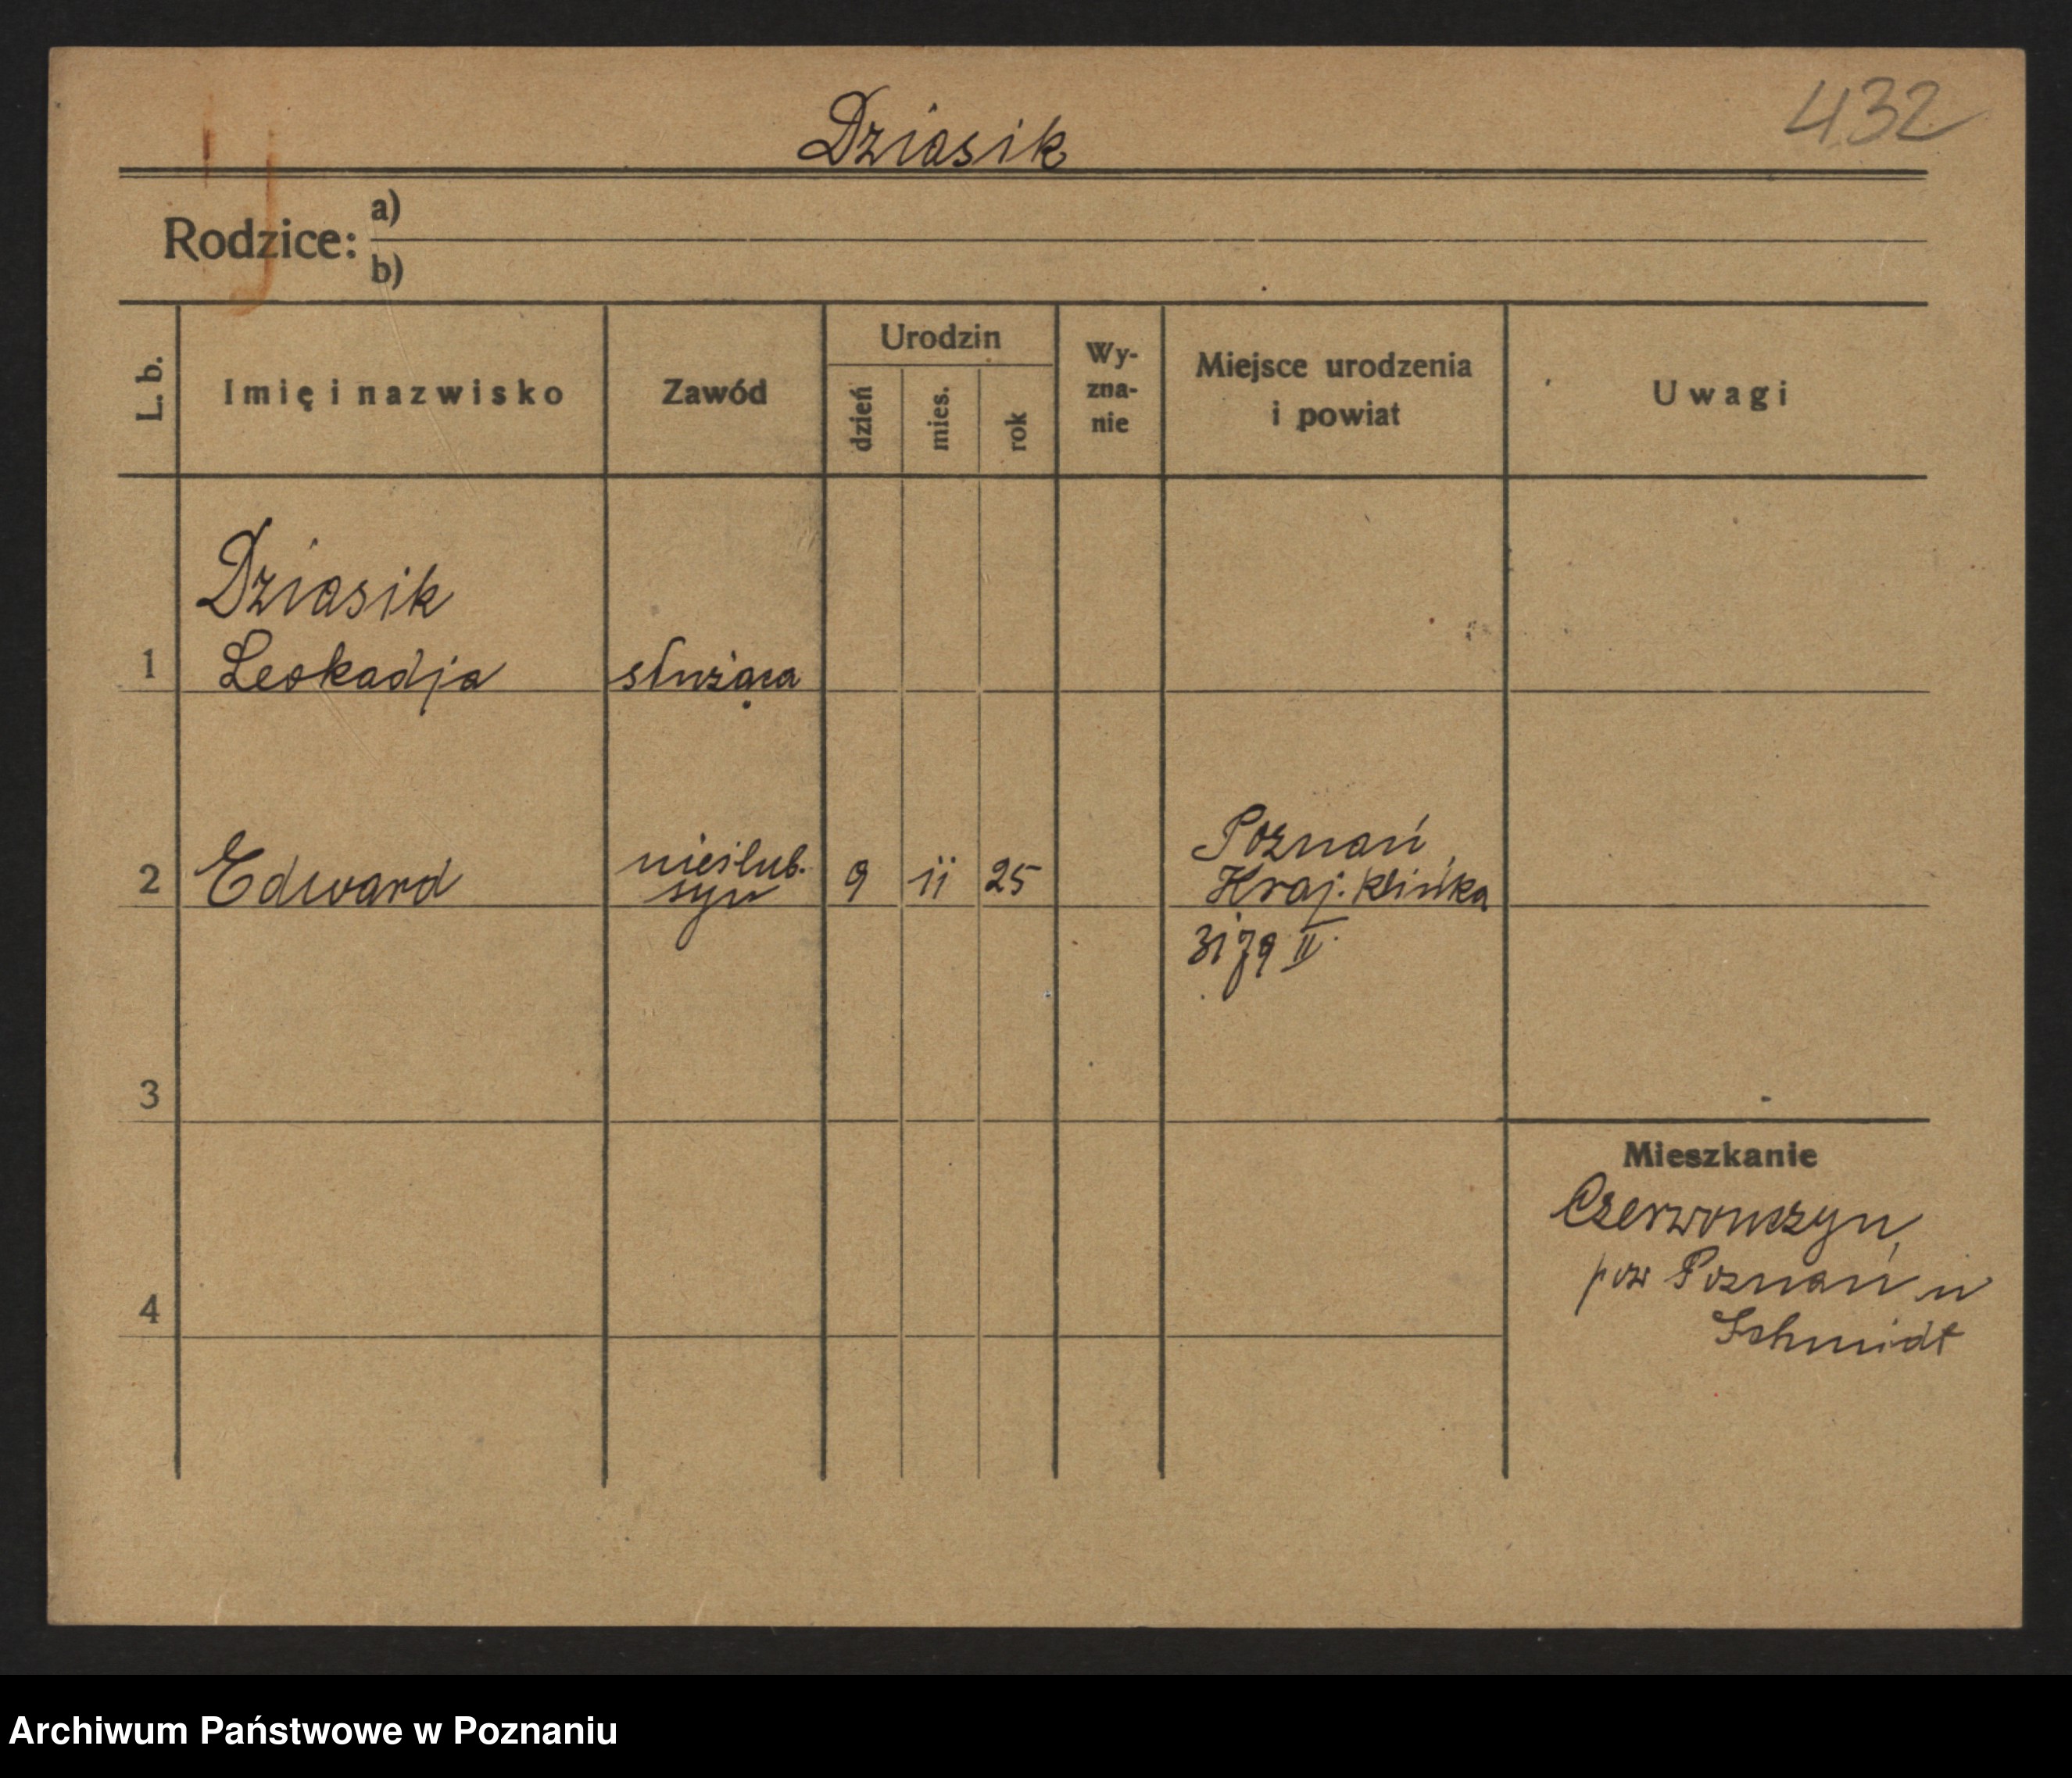 432
Dziasik
Rodzice:
a)
b)
L. b.
Imię i nazwisko
Zawód
Urodzin
dzień
mies.
rok
Wy-
zna-
nie
Miejsce urodzenia
i powiat
Uwagi
1
Dziasik
Leokadja
służąca
2
Edward
nieślub.
syn
9
11
25
Poznań
Kraj. klińka
3179 II
3
4
Mieszkanie
pow Poznań u
Schmidt
Archiwum Państwowe w Poznaniu